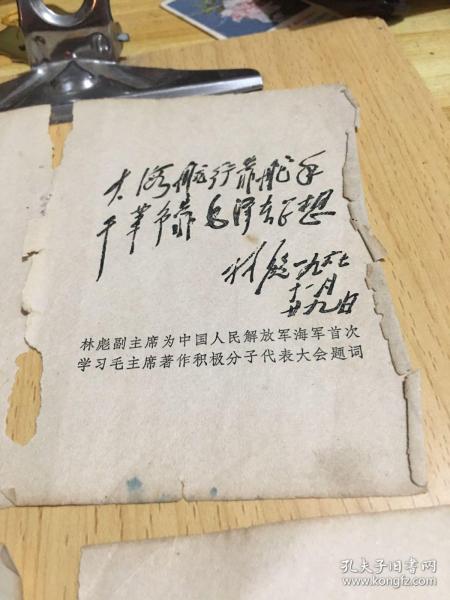 大海航行靠舵手
干革命靠毛泽东思想
林彪 一九六七
十一月
廿九日
林彪副主席为中国人民解放军海军首次
学习毛主席著作积极分子代表大会题词
孔夫子旧书网
www.kongfz.com